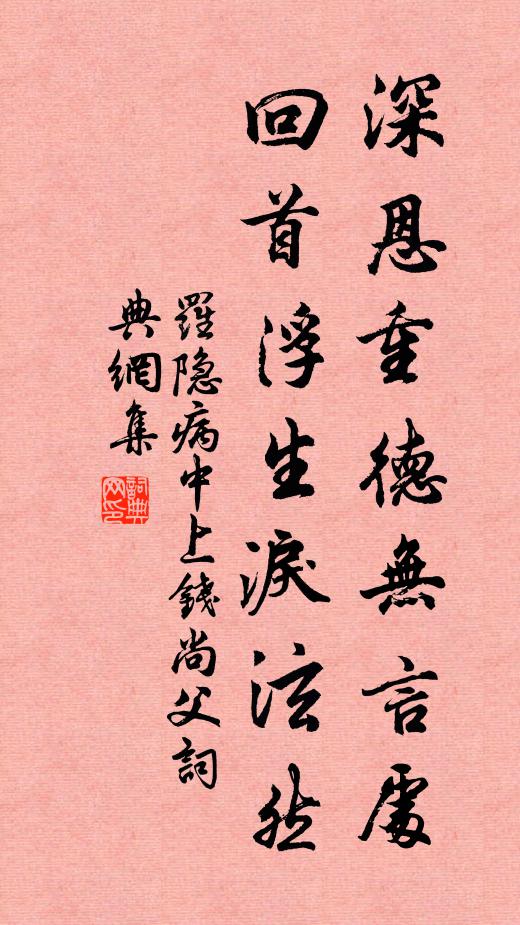 深恩重德無言處
回首浮生淚泫然
羅隐病中上錢尚父詞
典網集
詞典網印